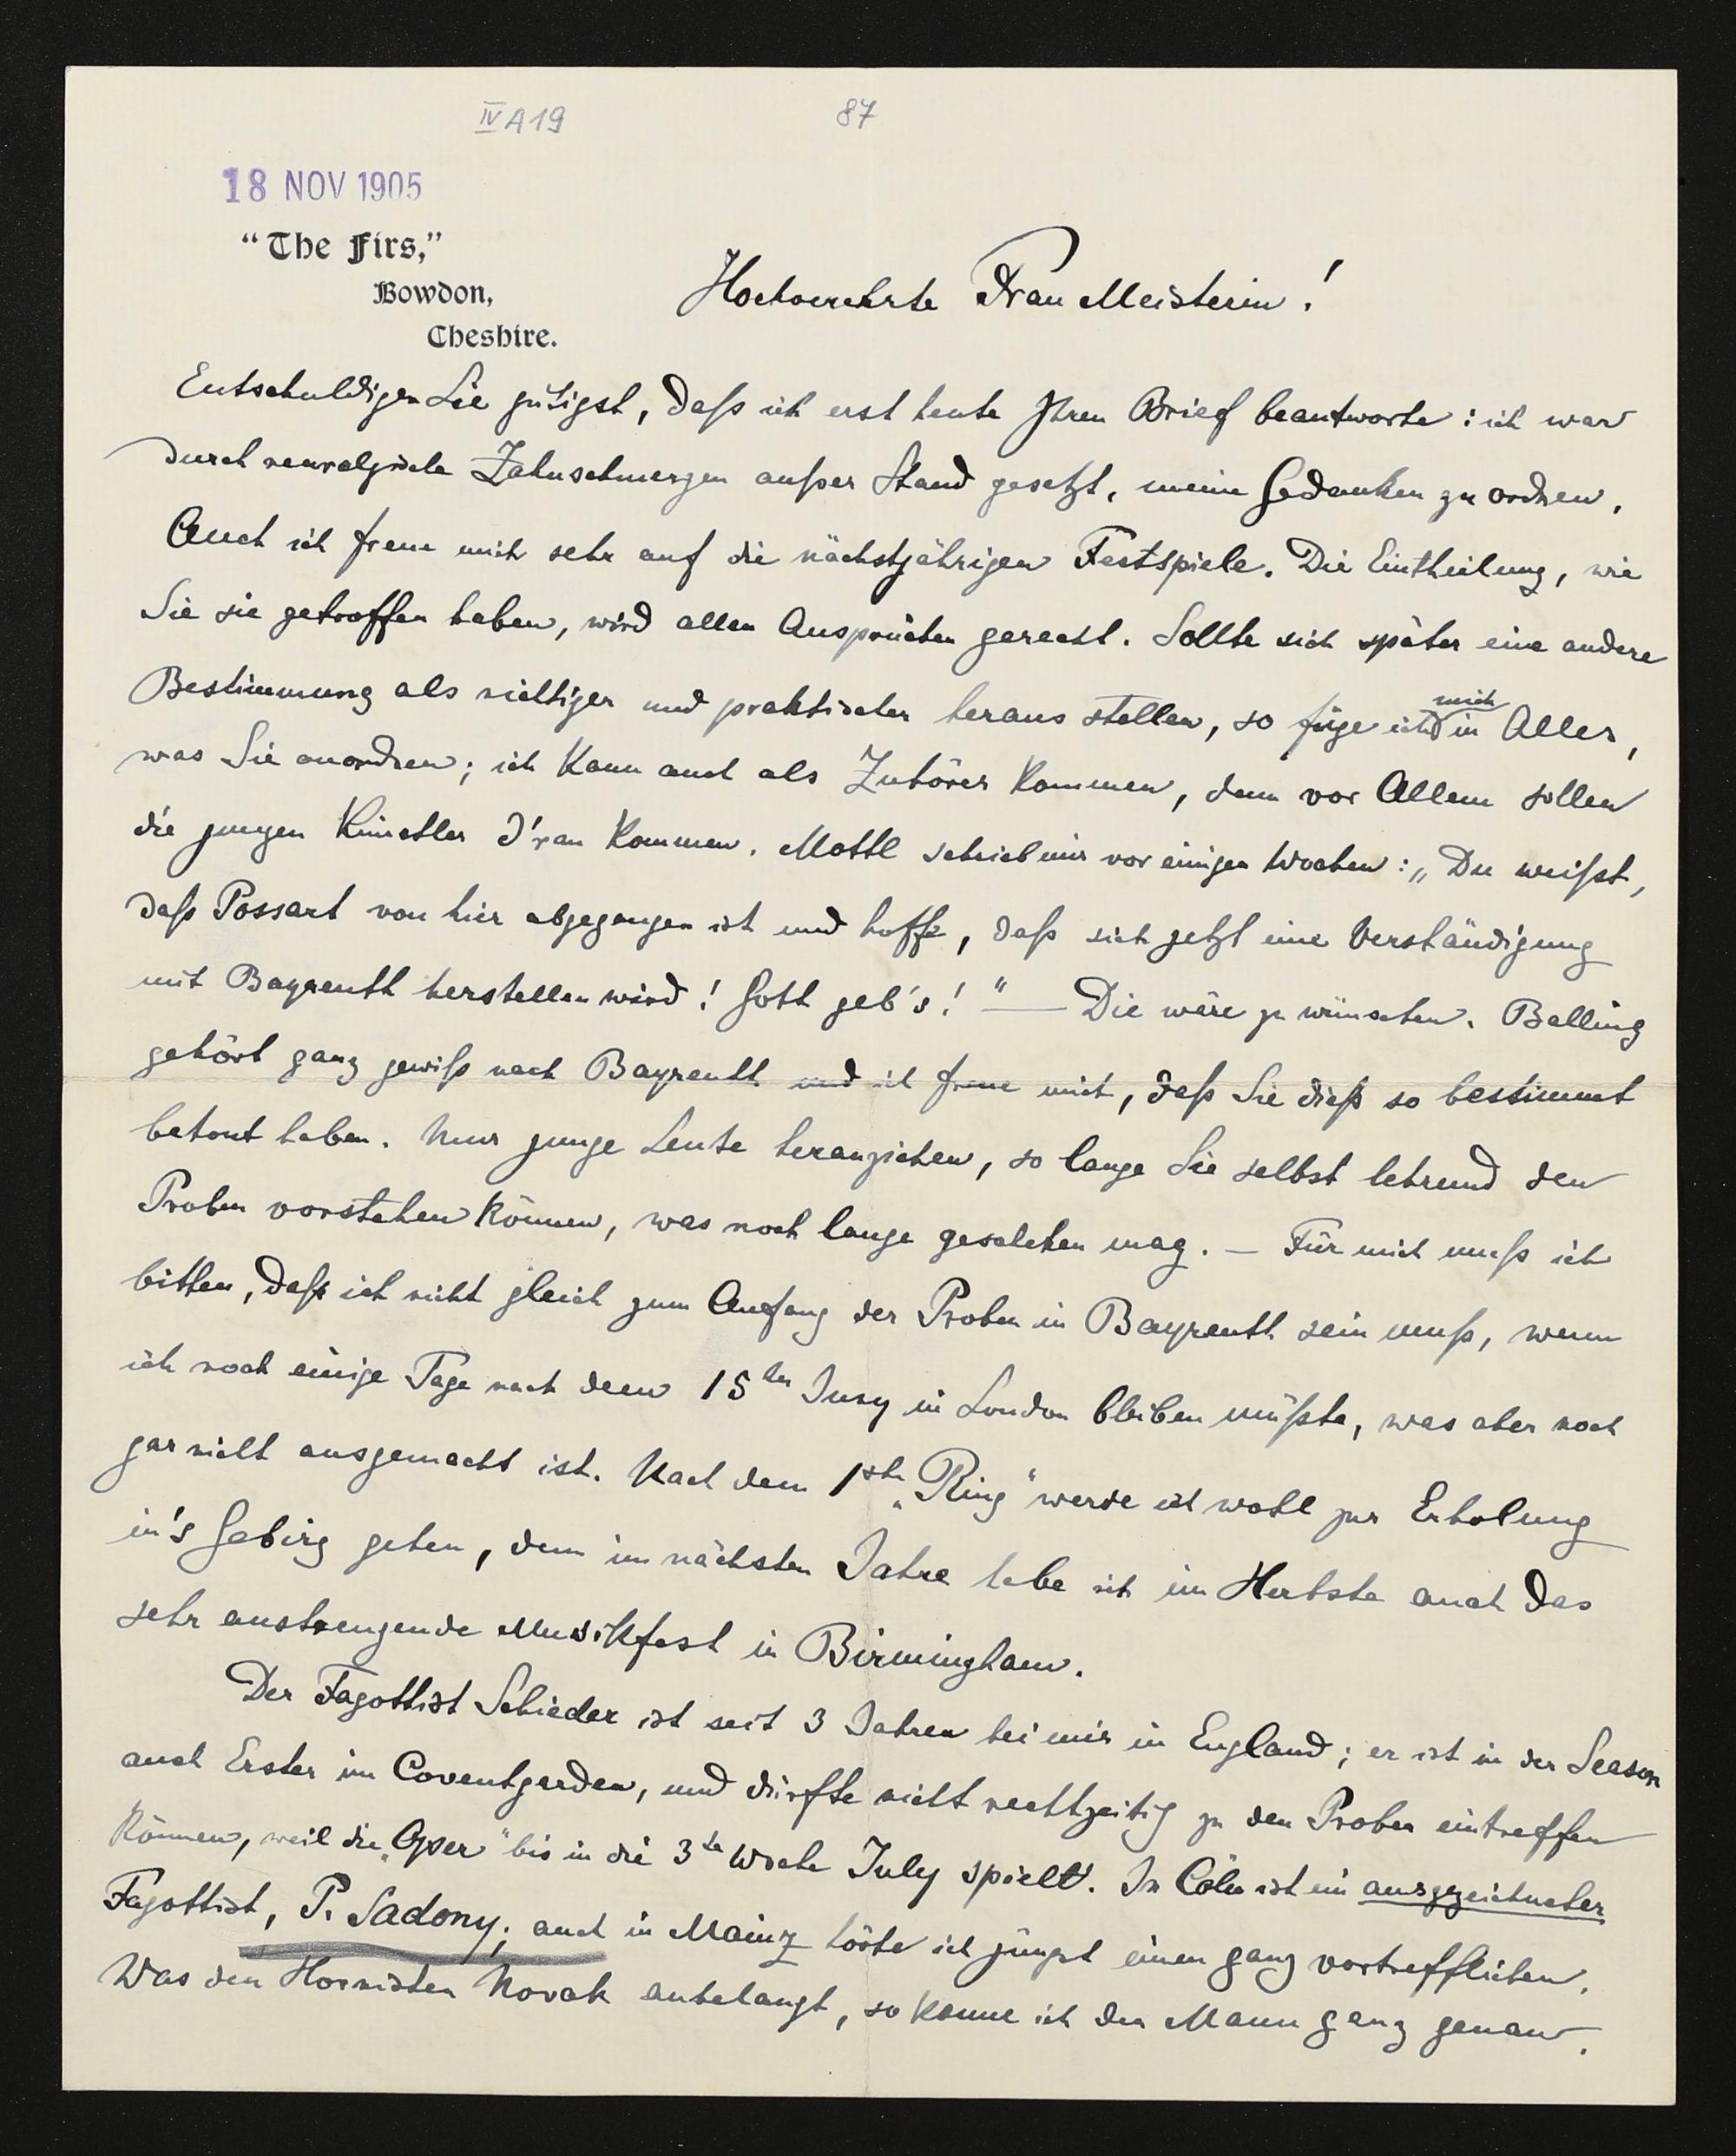 IV A 19 87
18 NOV 1905
"The Firs,"
Bowdon,
Cheshire.
Hochverehrte Frau Meisterin!
Entschuldigen Sie gütigst, daß ich erst heute Ihren Brief beantworte: ich war
durch neuralgische Zahnschmerzen außer Stand gesetzt, meine Gedanken zu ordnen.
Auch ich freue mich sehr auf die nächstjährigen Festspiele. Die Eintheilung, wie
Sie sie getroffen haben, wird allen Ansprüchen gerecht. Sollte sich später eine andere
Bestimmung als richtiger und praktischer heraus stellen, so füge ich mich in Alles,
was Sie anordnen; ich kann auch als Zuhörer kommen, denn vor Allem sollen
die jungen Künstler d'ran kommen. Mottl schrieb mir vor einigen Wochen: „Du weißt,
daß Possart von hier abgegangen ist und hoffe, daß sich jetzt eine Verständigung
mit Bayreuth herstellen wird! Gott geb's!" — Die wäre zu wünschen. Balling
gehört ganz gewiß nach Bayreuth und ich freue mich, daß Sie dieß so bestimmt
betont haben. Nur junge Leute heranziehen, so lange Sie selbst lehrend den
Proben vorstehen können, was noch lange geschehen mag. — Für mich muß ich
bitten, daß ich nicht gleich zum Anfang der Proben in Bayreuth sein muß, wenn
ich noch einige Tage nach dem 15ten Juny in London bleiben müßte, was aber noch
gar nicht ausgemacht ist. Nach dem 1sten „Ring" werde ich wohl zur Erholung
in's Gebirg gehen, denn im nächsten Jahre habe ich im Herbste auch das
sehr anstrengende Musikfest in Birmingham.
Der Fagottist Schieder ist seit 3 Jahren bei mir in England; er ist in der Season
auch Erster im Coventgarden, und dürfte nicht rechtzeitig zu den Proben eintreffen
können, weil die „Oper" bis in die 3te Woche July spielt. In Cöln ist ein ausgezeichneter
Fagottist, P. Sadony; auch in Mainz hörte ich jüngst einen ganz vortrefflichen.
Was den Hornisten Novak anbelangt, so kenne ich den Mann ganz genau.